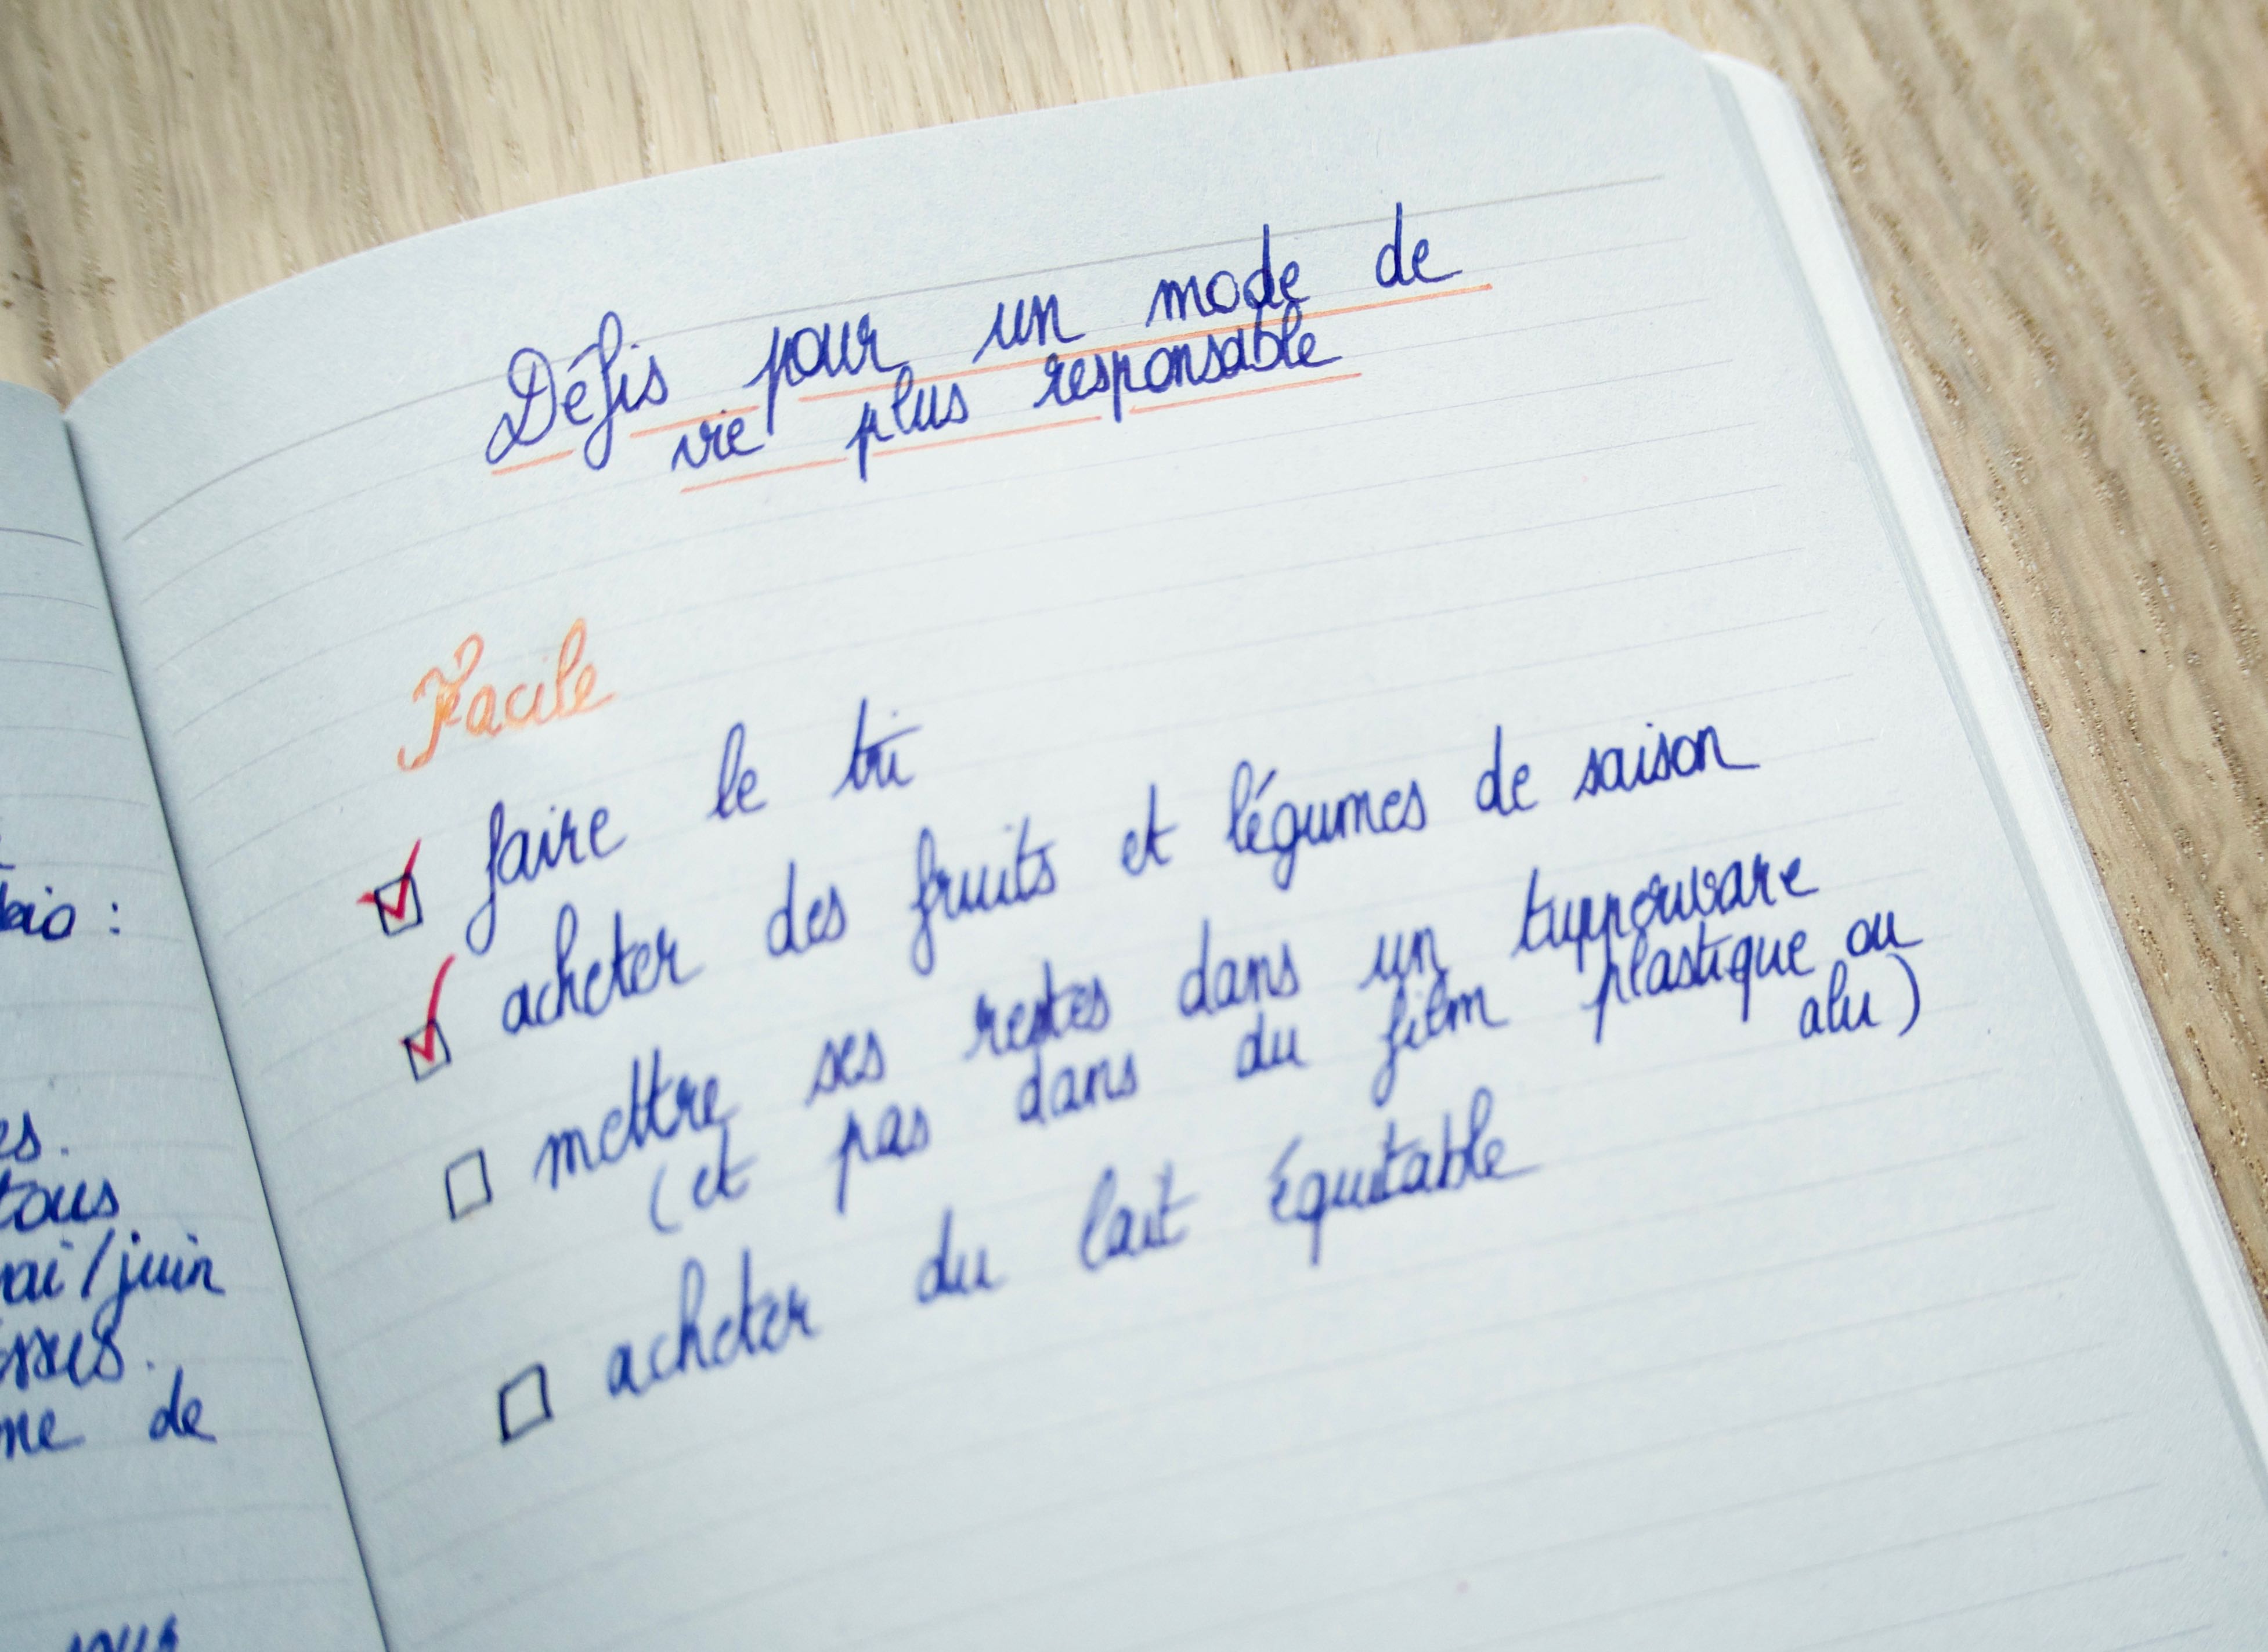 Défis pour un mode de
vie plus responsable
Facile
faire le tri
acheter des fruits et légumes de saison
mettre ses restes dans un tupperware
(et pas dans du film plastique ou
alu)
acheter du lait équitable
es.
tous
/juin
de